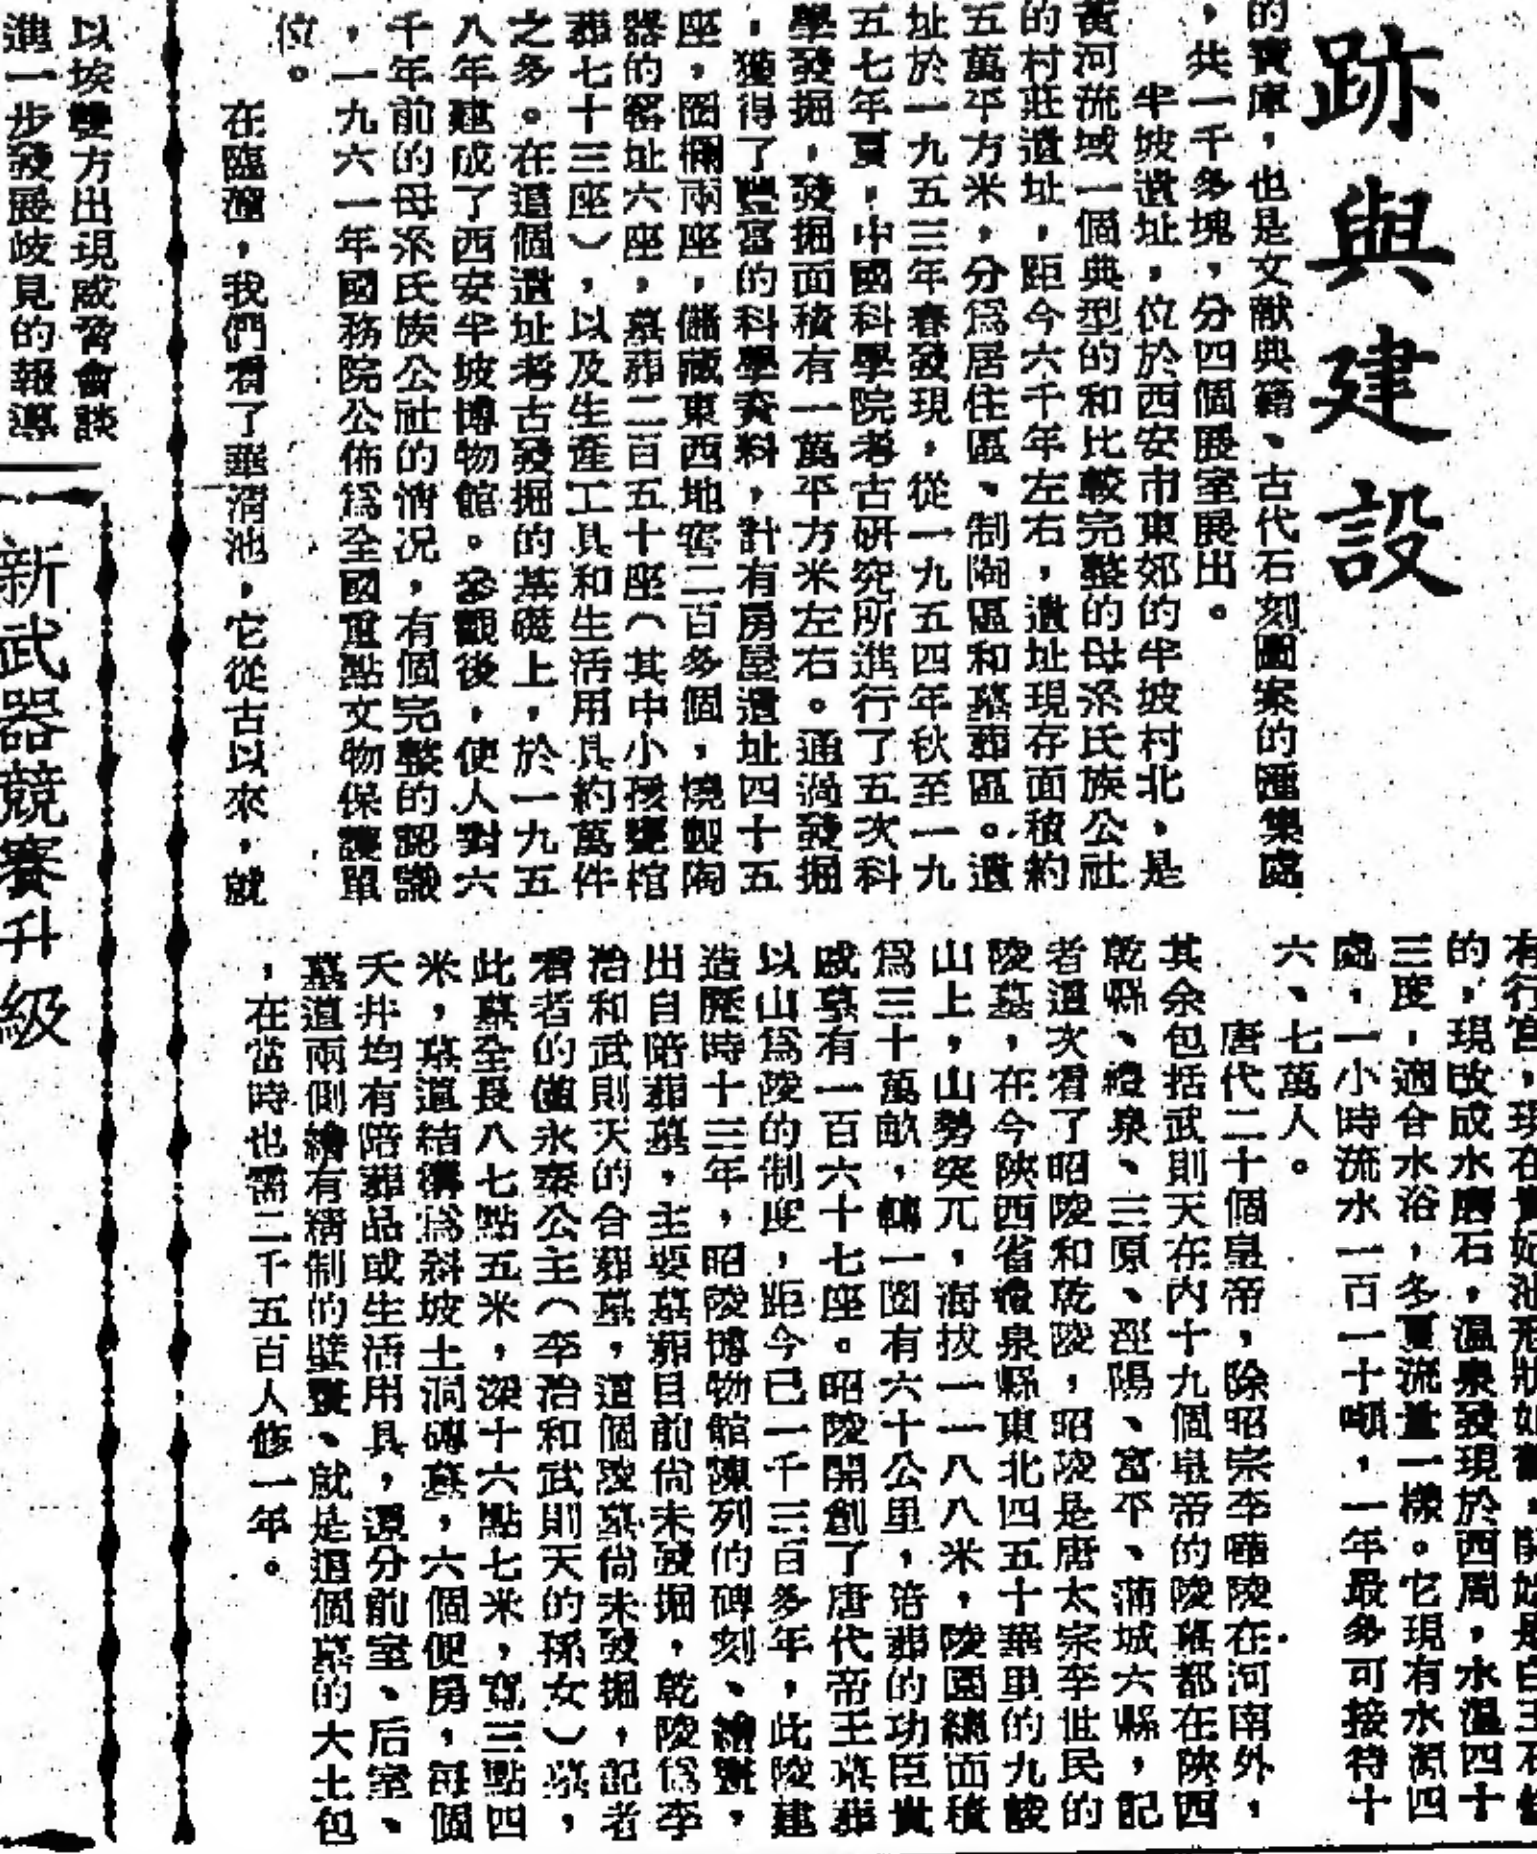 跡與建設
的寶庫，也是文献典籍、古代石刻圖案的匯集處
，共一千多塊，分四個展室展出。
半坡遺址，位於西安市東郊的半坡村北，是
黃河流域一個典型的和比較完整的母系氏族公社
的村莊遺址，距今六千年左右，遺址現存面積約
五萬平方米，分為居住區、制陶區和墓葬區。遺
址於一九五三年春發現，從一九五四年秋至一九
五七年夏，中國科學院考古研究所進行了五次科
學發掘，發掘面積有一萬平方米左右。通過發掘
，獲得了豐富的科學資料，計有房屋遺址四十五
座，圈欄兩座，儲藏東西地窖二百多個，燒製陶
器的窰址六座，墓葬二百五十座（其中小孩甕棺
葬七十三座），以及生產工具和生活用具約萬件
之多。在這個遺址考古發掘的基礎上，於一九五
八年建成了西安半坡博物館。參觀後，使人對六
千年前的母系氏族公社的情況，有個完整的認識
，一九六一年國務院公佈為全國重點文物保護單
位。
在臨潼，我們看了華清池，它從古以來，就
有行宮，現在貴妃池形狀如舊，開始是白玉石
的，現改成水磨石，溫泉發現於西周，水溫四十
三度，適合水浴，多夏流量一樣。它現有水源四
處，一小時流水一百一十噸，一年最多可接待十
六、七萬人。
唐代二十個皇帝，除昭宗李曄陵在河南外，
其余包括武則天在內十九個皇帝的陵墓都在陝西
乾縣、禮泉、三原、涇陽、富平、蒲城六縣，記
者這次看了昭陵和乾陵，昭陵是唐太宗李世民的
陵墓，在今陝西省禮泉縣東北四五十華里的九嵕
山上，山勢突兀，海拔一一八八米，陵園總面積
為三十萬畝，轉一圈有六十公里，陪葬的功臣貴
戚墓有一百六十七座。昭陵開創了唐代帝王墓葬
以山為陵的制度，距今已一千三百多年，此陵建
造歷時十三年，昭陵博物館陳列的碑刻、繪畫，
出自陪葬墓，主要墓葬目前尚未發掘，乾陵為李
治和武則天的合葬墓，這個陵墓尚未發掘，記者
看者的僅永泰公主（李治和武則天的孫女）墓，
此墓全長八七點五米，深十六點七米，寬三點四
米，墓道結構為斜坡土洞磚墓，六個便房，每個
天井均有陪葬品或生活用具，還分前室、后室、
墓道兩側繪有精制的壁畫、就是這個墓的大土包
，在當時也需二千五百人修一年。
以埃雙方出現威脅會談
進一步發展歧見的報導
新武器競賽升級